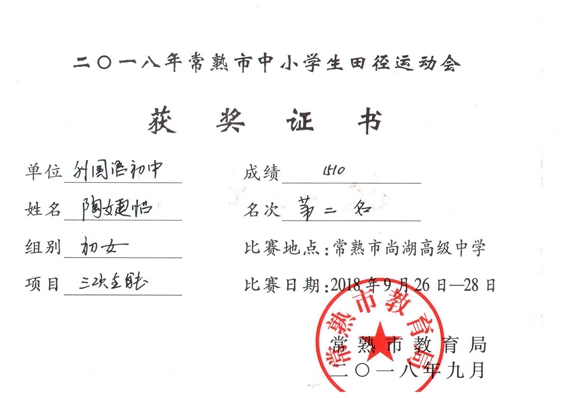 二〇一八年常熟市中小学生田径运动会
获奖证书
单位 外国语初中 成绩 1510
姓名 陶婕怡 名次 第二名
组别 初女 比赛地点：常熟市尚湖高级中学
项目 三次全能 比赛日期：2018年9月26日—28日
常熟市教育局
常熟市教育局
二〇一八年九月